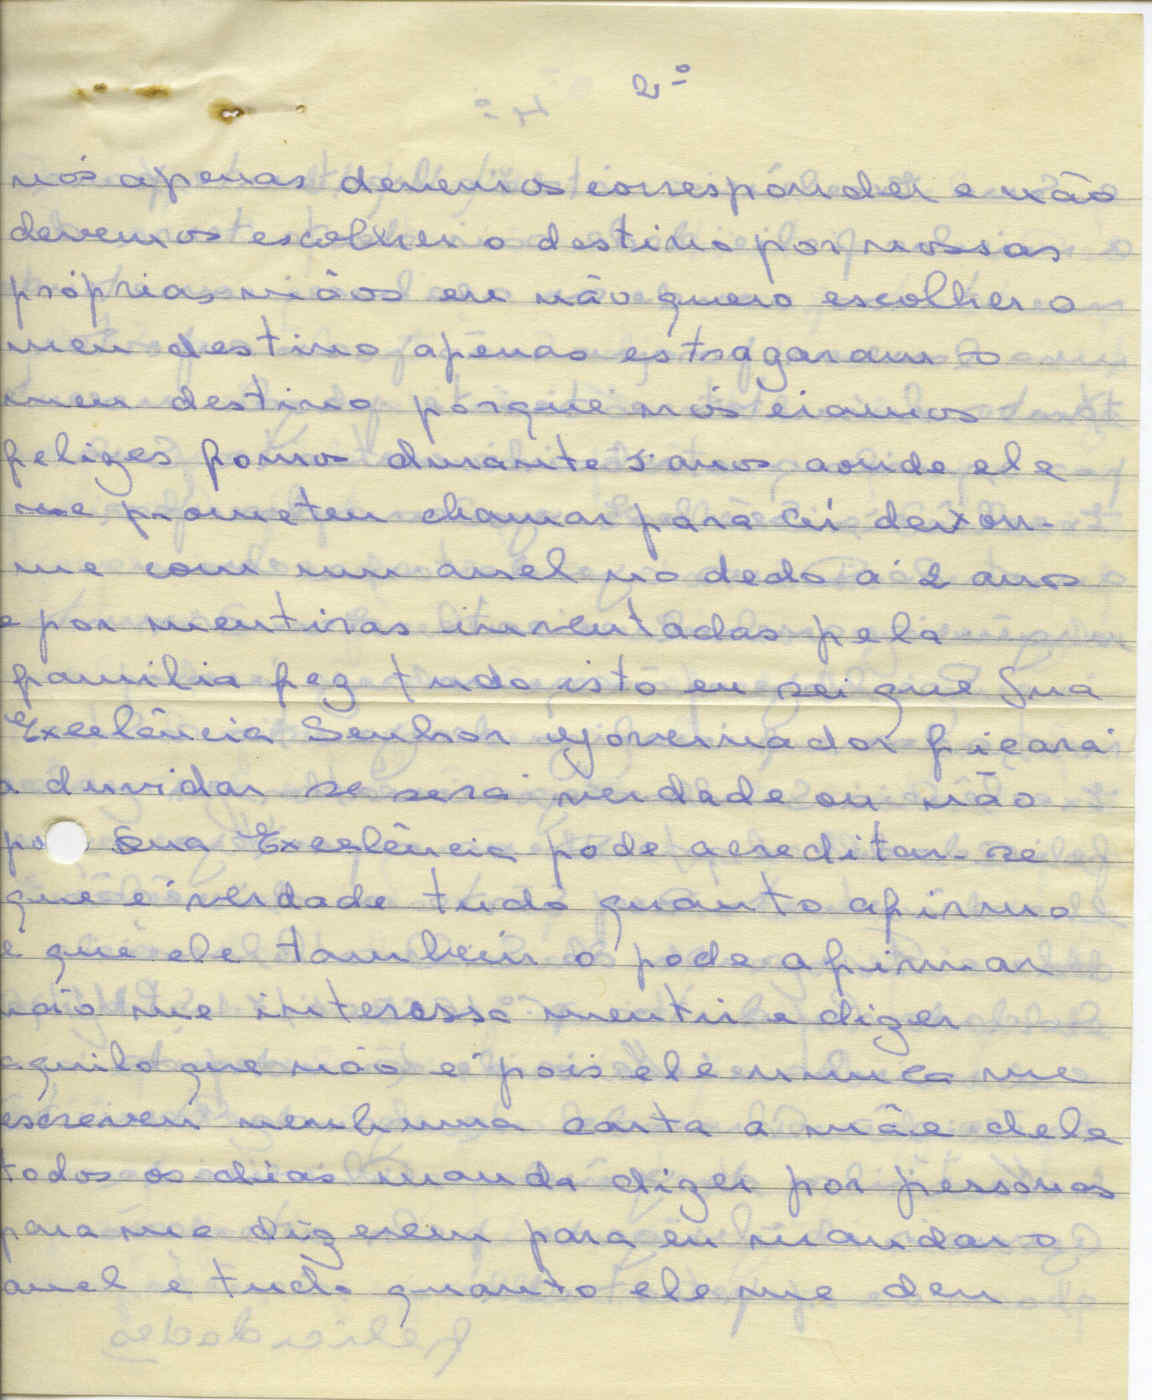 2º
nós apenas devemos correspónder e não
devemos escolher o destino por nossas
próprias mãos eu não quero escolher o
meu destino apenas estragaram o
meu destino porque nós eiamos
felizes fomos durante 5 anos aonde ele
me prometeu chamar para cá deixou-
me com um anel no dedo a 2 anos
e por mentiras inventadas pela
familia fez tudo isto eu sei que Sua
Excelência Senhor Governador ficará
a duvidar se será verdade ou não
po Sua Excelência pode acreditar-se
que é verdade tudo quanto afirmo
e que ele tambem o pode afirmar
não me interessa mentir e dizer
aquilo que não é pois ele nunca me
escreveu nenhuma carta a mãe dele
todos os dias manda dizer por pessoas
para me dizerem para eu mandar o
anel e tudo quanto ele me deu